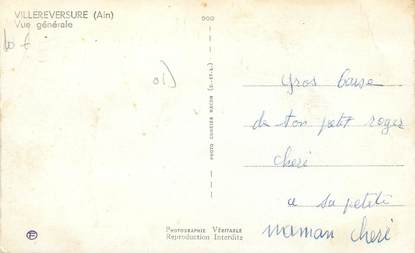 VILLEREVERSURE (Ain)
Vue générale
10 f
01)
PHOTO COMBIER MACON (S.-ET-L.)
Gros baise
de ton petit roger
cheri
a sa petite
maman cheri
Photographie Véritable
Reproduction Interdite